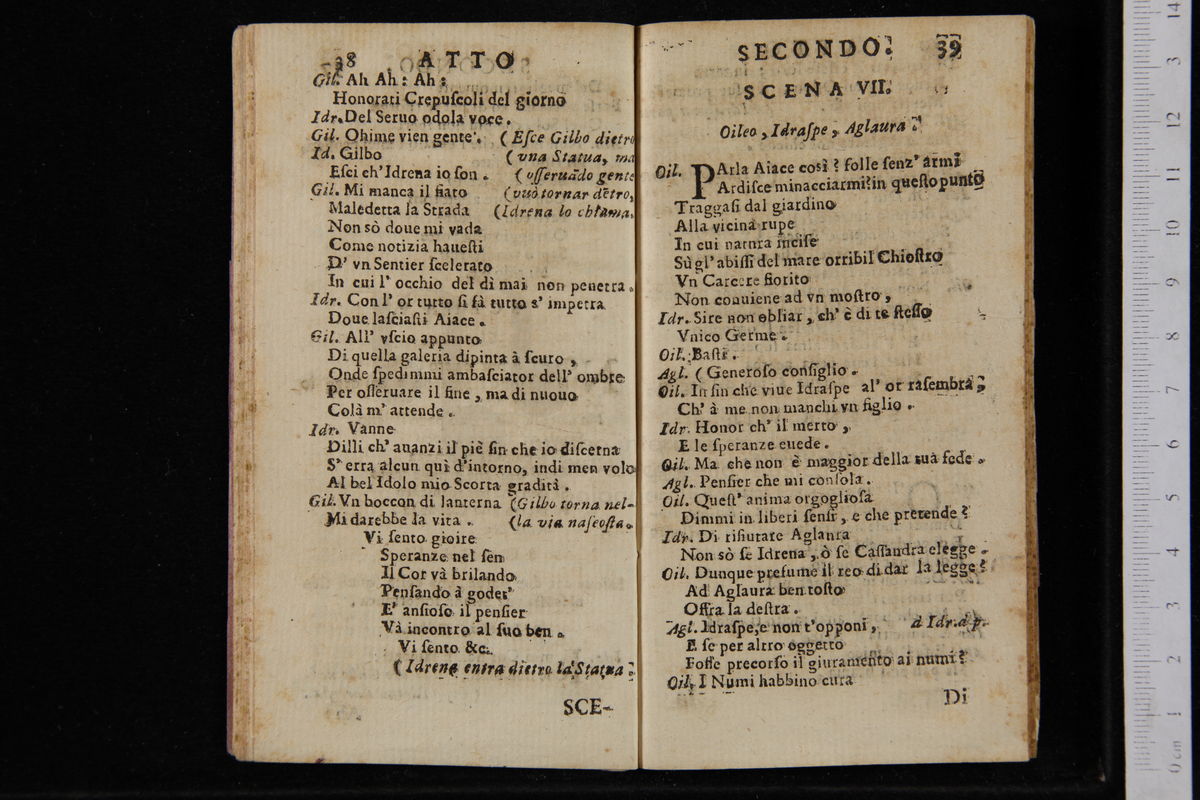 38 ATTO
Gil. Ah Ah: Ah:
Honorati Crepuſcoli del giorno
Idr. Del Seruo odola voce.
Gil. Ohime vien gente. (Eſce Gilbo dietro
Id. Gilbo (vna Statua, ma
Eſci ch'Idrena io ſon. (oſſeruãdo gente
Gil. Mi manca il fiato (vuò tornar dẽtro,
Maledetta la Strada (Idrena lo chiama.
Non sò doue mi vada
Come notizia haueſti
D' vn Sentier ſcelerato
In cui l' occhio del dì mai non penetra.
Idr. Con l' or tutto ſi fà tutto s' impetra
Doue laſciaſti Aiace.
Gil. All' vſcio appunto
Di quella galeria dipinta à ſcuro,
Onde ſpedimmi ambaſciator dell' ombre
Per oſſeruare il fine, ma di nuouo
Colà m' attende.
Idr. Vanne
Dilli ch' auanzi il piè fin che io diſcerna
S' erra alcun quì d'intorno, indi men volo
Al bel Idolo mio Scorta gradita.
Gil. Vn boccon di lanterna (Gilbo torna nel-
Mi darebbe la vita. (la via naſcoſta.
Vi ſento gioire
Speranze nel ſen
Il Cor và brilando
Penſando à goder
E' anſioſo il penſier
Và incontro al ſuo ben.
Vi ſento &c.
(Idrena entra dietro la Statua:
SCE-
SECONDO. 39
SCENA VII.
Oileo, Idraſpe, Aglaura.
Oil. PArla Aiace così? folle ſenz' armi
Ardiſce minacciarmi? in queſto punto
Traggaſi dal giardino
Alla vicina rupe
In cui natura inciſe
Sù gl' abiſſi del mare orribil Chioſtro
Vn Carcere fiorito
Non conuiene ad vn moſtro,
Idr. Sire non obliar, ch' è di te ſteſſo
Vnico Germe.
Oil. Baſti.
Agl. (Generoſo conſiglio.
Oil. In fin che viue Idraſpe al' or raſembra,
Ch' à me non manchi vn figlio.
Idr. Honor ch' il merto,
E le ſperanze euede.
Oil. Ma che non è maggior della tuà fede.
Agl. Penſier che mi conſola.
Oil. Queſt' anima orgoglioſa
Dimmi in liberi ſenſi, e che pretende?
Idr. Di rifiutare Aglaura
Non sò ſe Idrena, ò ſe Caſſandra elegge.
Oil. Dunque preſume il reo di dar la legge?
Ad Aglaura ben toſto
Offra la deſtra.
Agl. Idraſpe, e non t'opponi, à Idr. à p.
E ſe per altro oggetto
Foſſe precorſo il giuramento ai numi?
Oil. I Numi habbino cura
Di